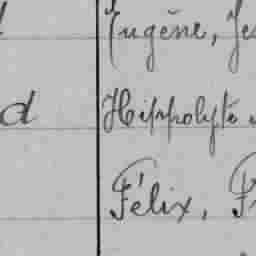 Eugène, Je
d Hippolyte
Félix, F